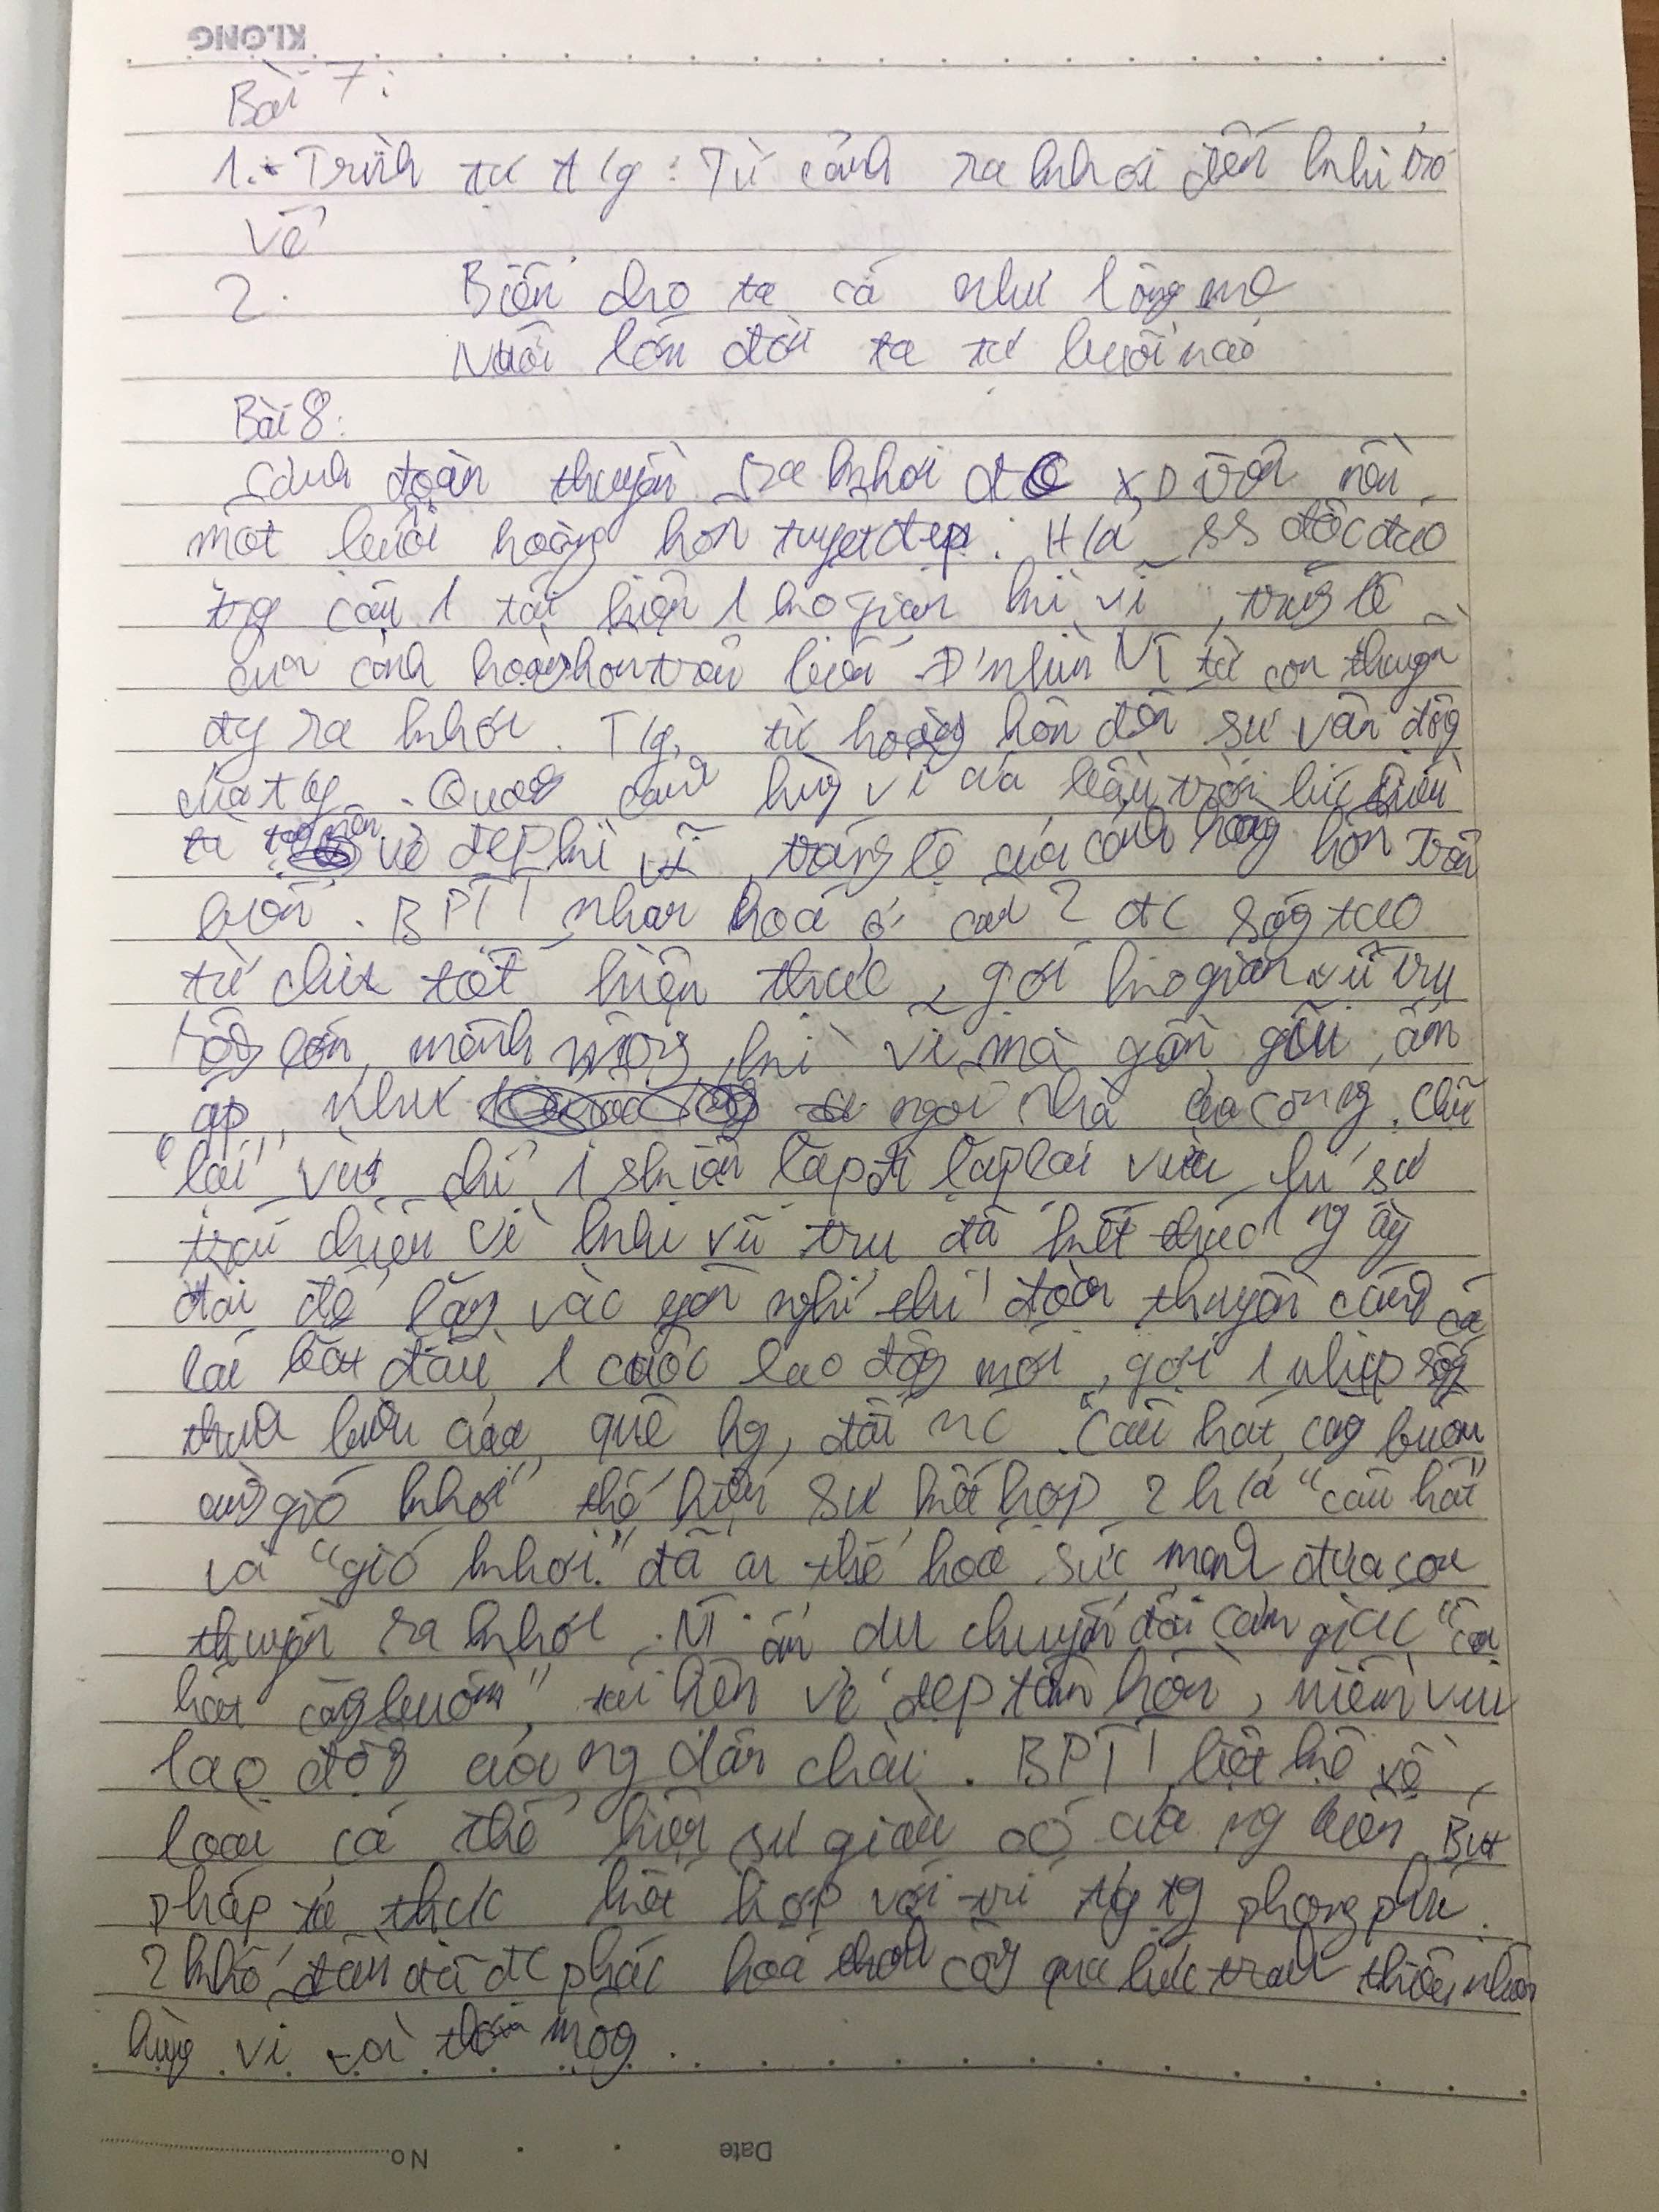 KLONG
Bài 7:
1. Trình tự t/g: Từ cảnh ra khơi đến khi trở
về
2. Biển cho ta cá như lòng mẹ
Nuôi lớn đời ta tự buổi nào
Bài 8:
Cảnh đoàn thuyền ra khơi đc XD với nền
một buổi hoàng hôn tuyệt đẹp. H/a ss độc đáo
trg câu 1 tái hiện 1 ko gian kì vĩ, tráng lệ
của cảnh hoàng hôn trên biển. Đ' nhìn NT từ con thuyền
đg ra khơi. T/g, từ hoàng hôn đến sự vận động
của t/g. Quang cảnh hùng vĩ của bầu trời lúc
từ vẻ đẹp kì vĩ, tráng lệ của cảnh hoàng hôn trên
biển. BPTT nhân hoá ở câu 2 đc sáng tạo
từ chi tiết hiện thực, gợi ko gian vũ trụ
rộng lớn, mênh mông, kì vĩ mà gần gũi, ấm
áp như ngôi nhà của con ng. Chữ
"lại" vừa chỉ 1 sự lặp đi lặp lại vừa chỉ sự
trái chiều vì khi vũ trụ đã kết thúc 1 ngày
dài để lặng vào yên nghỉ thì đoàn thuyền đánh cá
lại bắt đầu 1 cuộc lao động mới, gợi 1 nhịp sống
thân quen của quê hg, đất nc. "Câu hát căng buồm
cùng gió khơi" thể hiện sự kết hợp 2 h/a "câu hát"
và "gió khơi" đã cụ thể hoá sức mạnh đưa con
thuyền ra khơi. NT ẩn dụ chuyển đổi cảm giác "câu
hát căng buồm" tái hiện vẻ đẹp tâm hồn, niềm vui
lao động của ng dân chài. BPTT liệt kê về
loài cá thể hiện sự giàu có của ng biển. Bút
pháp tả thực kết hợp với trí tg tg phong phú.
2 khổ đầu đã đc phác hoạ thành công qua bức tranh thiên nhiên
hùng vĩ và thơ mộng.
No
Date